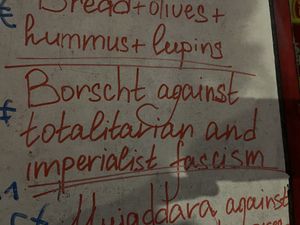 € Bread+olives+
hummus+luping
Borscht against
totalitarian and
imperialist fascism
Mujaddara against